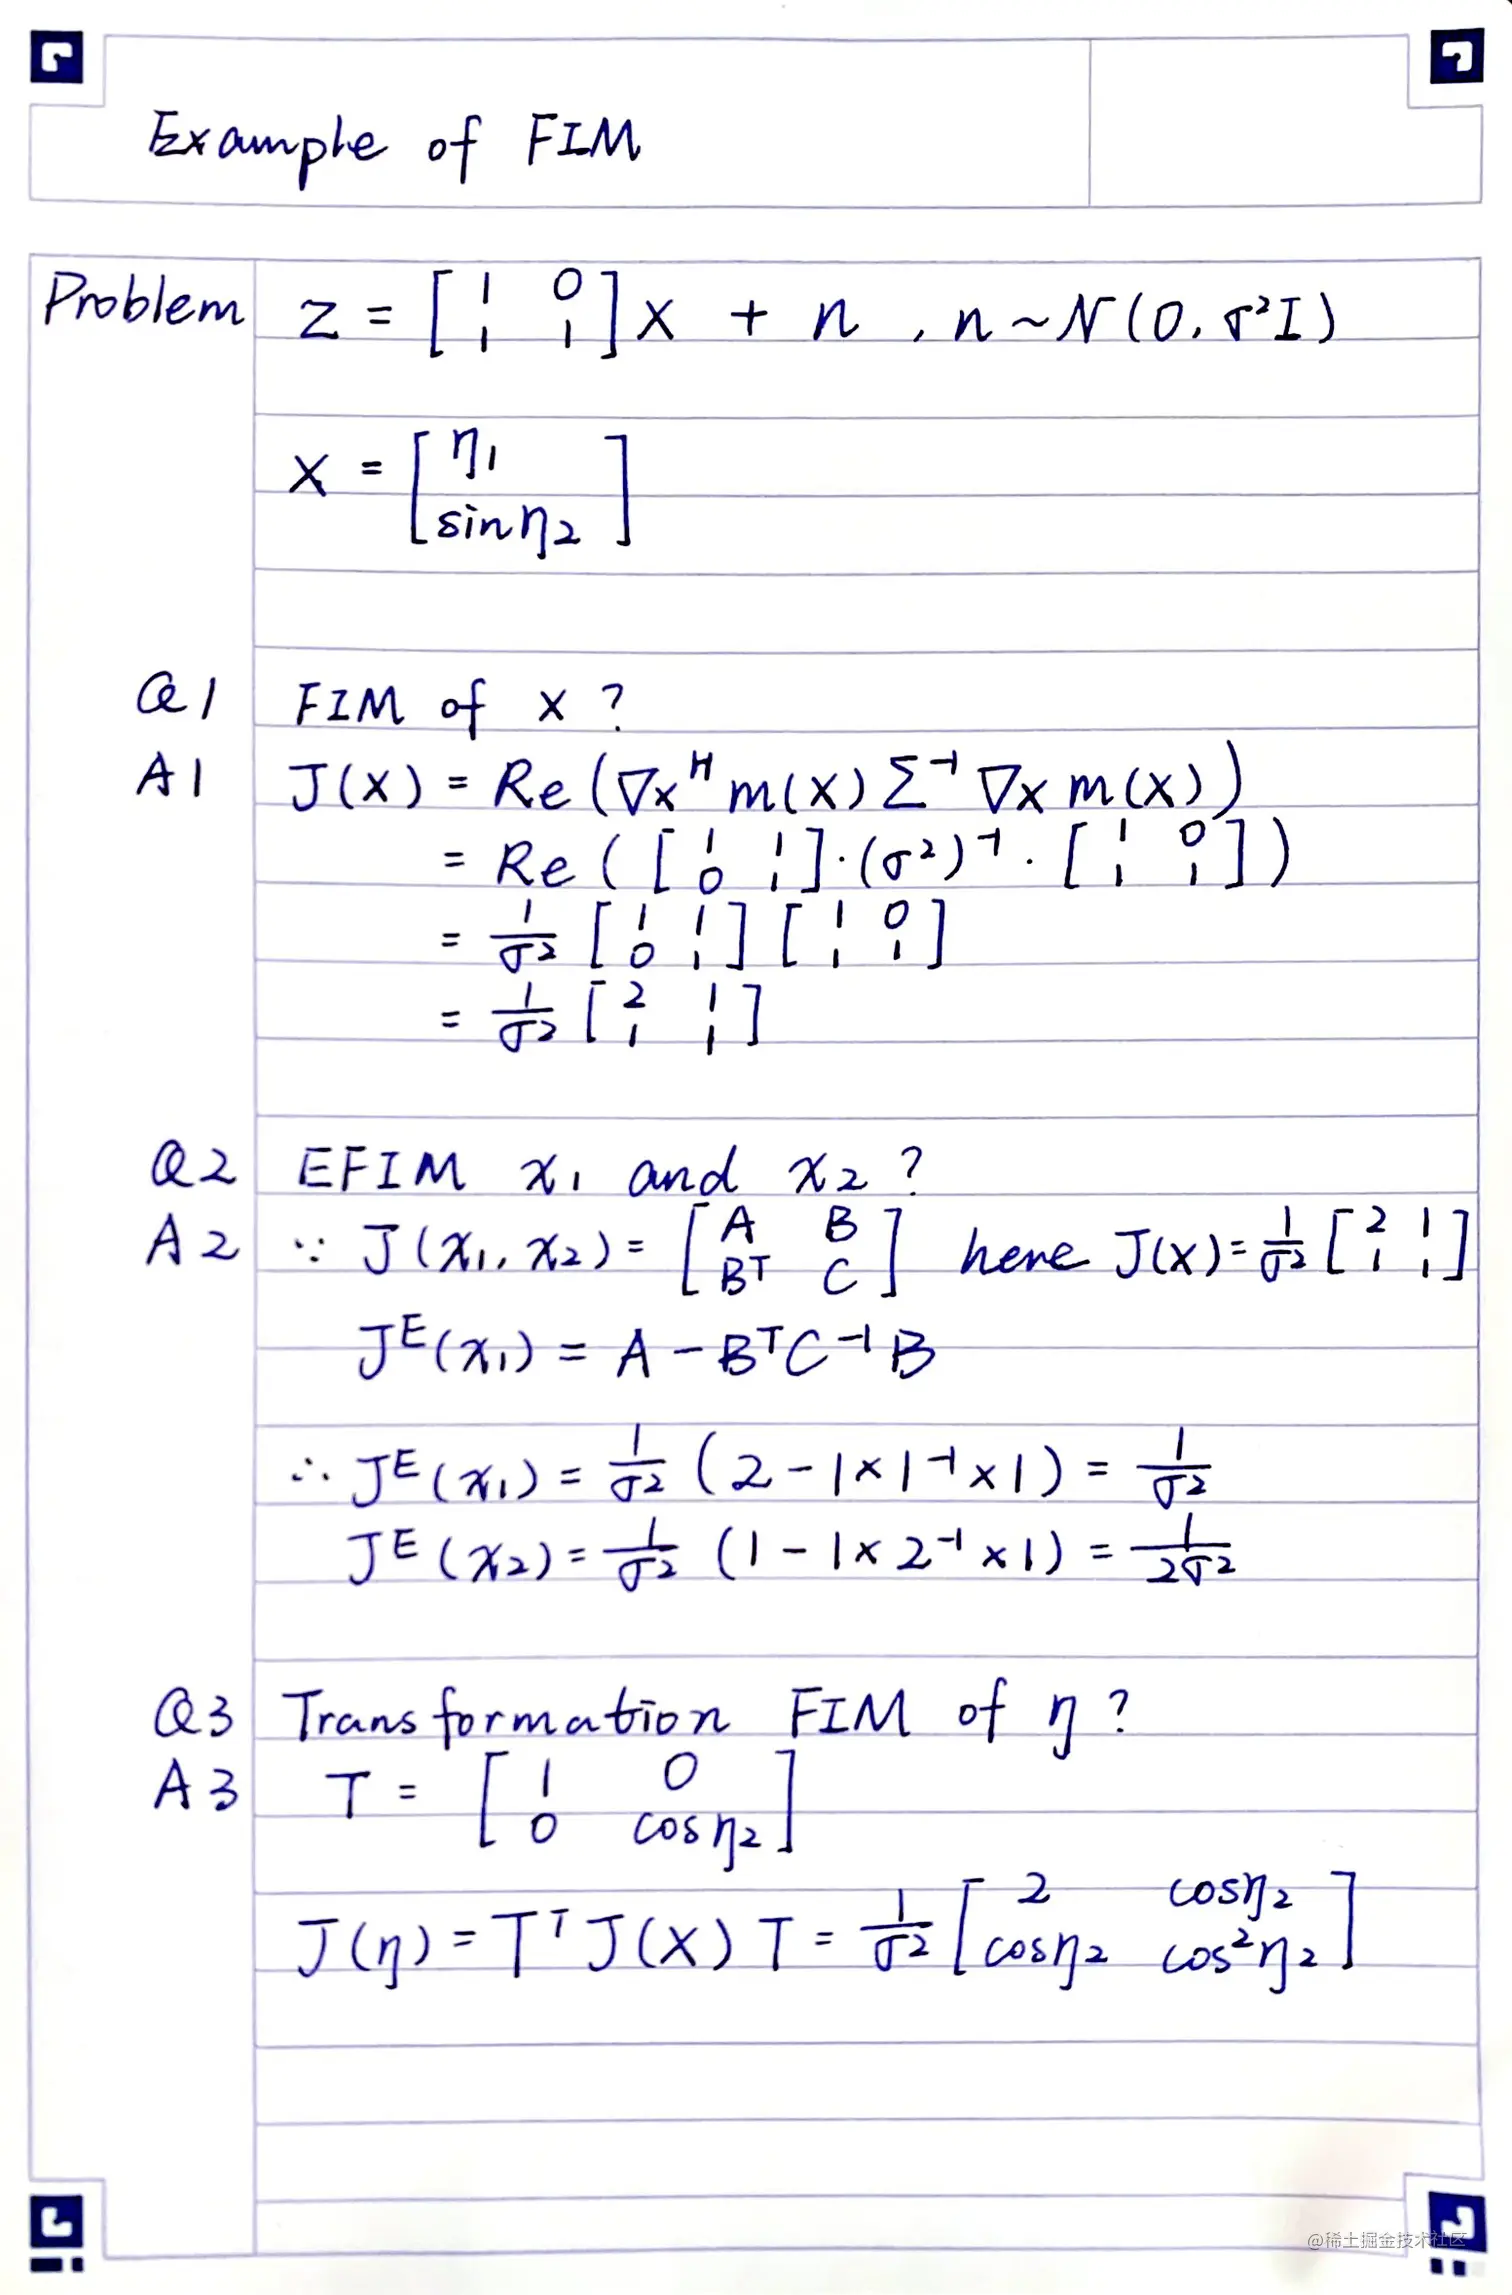 Example of FIM
Problem z = [1 0; 1 1] x + n , n ~ N(0, σ²I)
x = [η₁; sinη₂]
Q1 FIM of x ?
A1 J(x) = Re(∇xᴴ m(x) Σ⁻¹ ∇x m(x))
= Re([1 1; 0 1]·(σ²)⁻¹·[1 0; 1 1])
= 1/σ² [1 1; 0 1] [1 0; 1 1]
= 1/σ² [2 1; 1 1]
Q2 EFIM x₁ and x₂ ?
A2 ∵ J(x₁, x₂) = [A B; Bᵀ C] here J(x) = 1/σ² [2 1; 1 1]
Jᴱ(x₁) = A − BᵀC⁻¹B
∴ Jᴱ(x₁) = 1/σ² (2 − 1×1⁻¹×1) = 1/σ²
Jᴱ(x₂) = 1/σ² (1 − 1×2⁻¹×1) = 1/2σ²
Q3 Transformation FIM of η ?
A3 T = [1 0; 0 cosη₂]
J(η) = Tᵀ J(x) T = 1/σ² [2 cosη₂; cosη₂ cos²η₂]
@稀土掘金技术社区